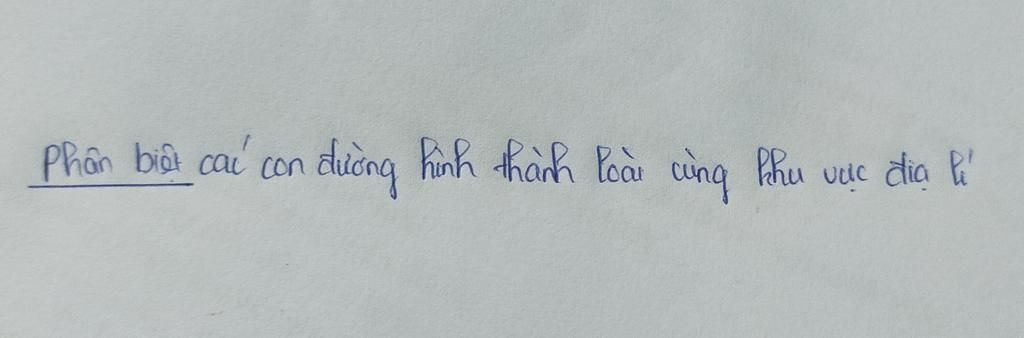 Phân biệt các con đường hình thành loài cùng khu vực địa lí